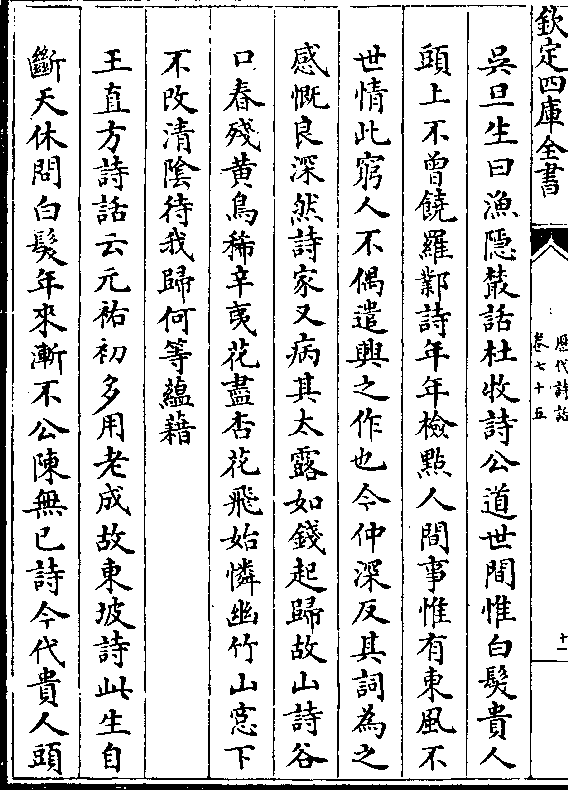 欽定四庫全書
歷代詩話
卷七十五
十一
吳旦生曰漁隱叢話杜牧詩公道世間惟白髮貴人
頭上不曾饒羅鄴詩年年檢點人間事惟有東風不
世情此窮人不偶遣興之作也今仲深反其詞為之
感慨良深然詩家又病其太露如錢起歸故山詩谷
口春殘黄鳥稀辛夷花盡杏花飛始憐幽竹山窓下
不改清陰待我歸何等蘊藉
王直方詩話云元祐初多用老成故東坡詩此生自
斷天休問白髮年來漸不公陳無已詩今代貴人頭